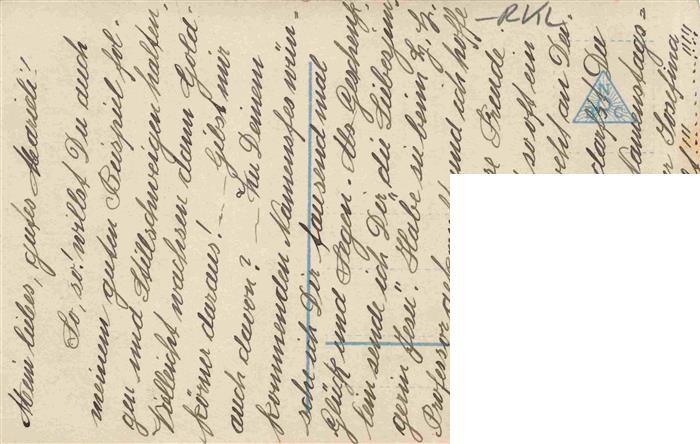 Mein liebes, gutes Mareili!
So, so! willst Du auch
meinem guten Beispiel fol-
gen und Stillschweigen halten.
Vielleicht wachsen dann Gold-
körner daraus! — Gibst mir
auch davon? — Zu Deinem
kommenden Namensfes wün-
sche ich Dir tausend mal
Glück und Segen. Als Geschenk
lein sende ich Dir die Liebesjün-
gerin Jesu! Habe sie beim H. H.
Professor und ich hoffe
Freude.
so oft ein
an Dei
darfst Du
Namenstags=
!!! !!!!
-RKL
NC